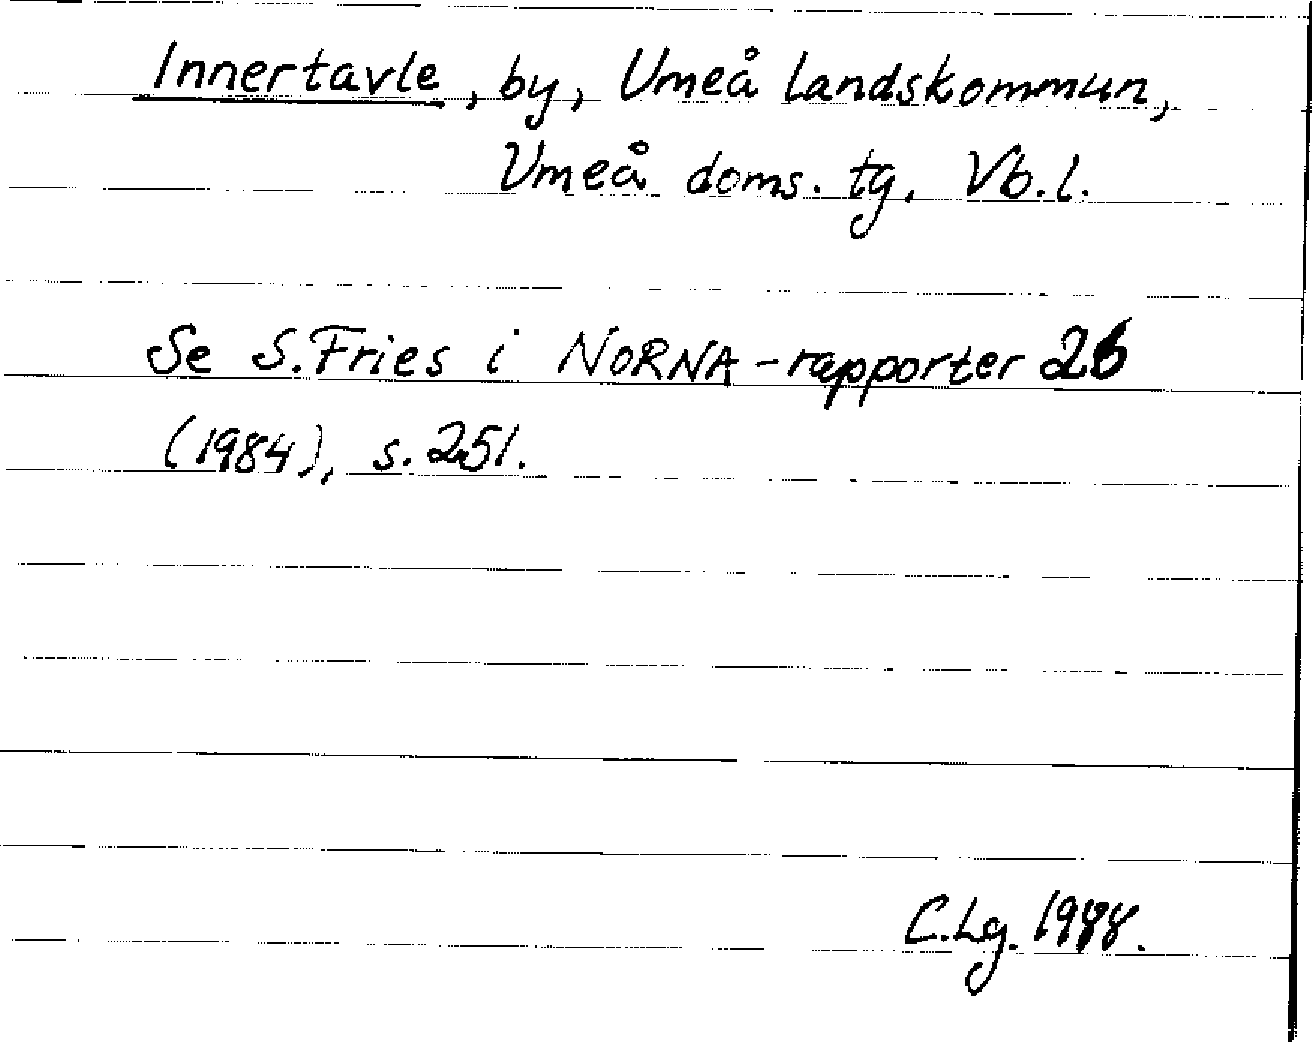 Innertavle, by, Umeå landskommun,
Umeå doms. tg, Vb.l.
Se S. Fries i NORNA-rapporter 26
(1984), s. 251.
C.Lg. 1988.